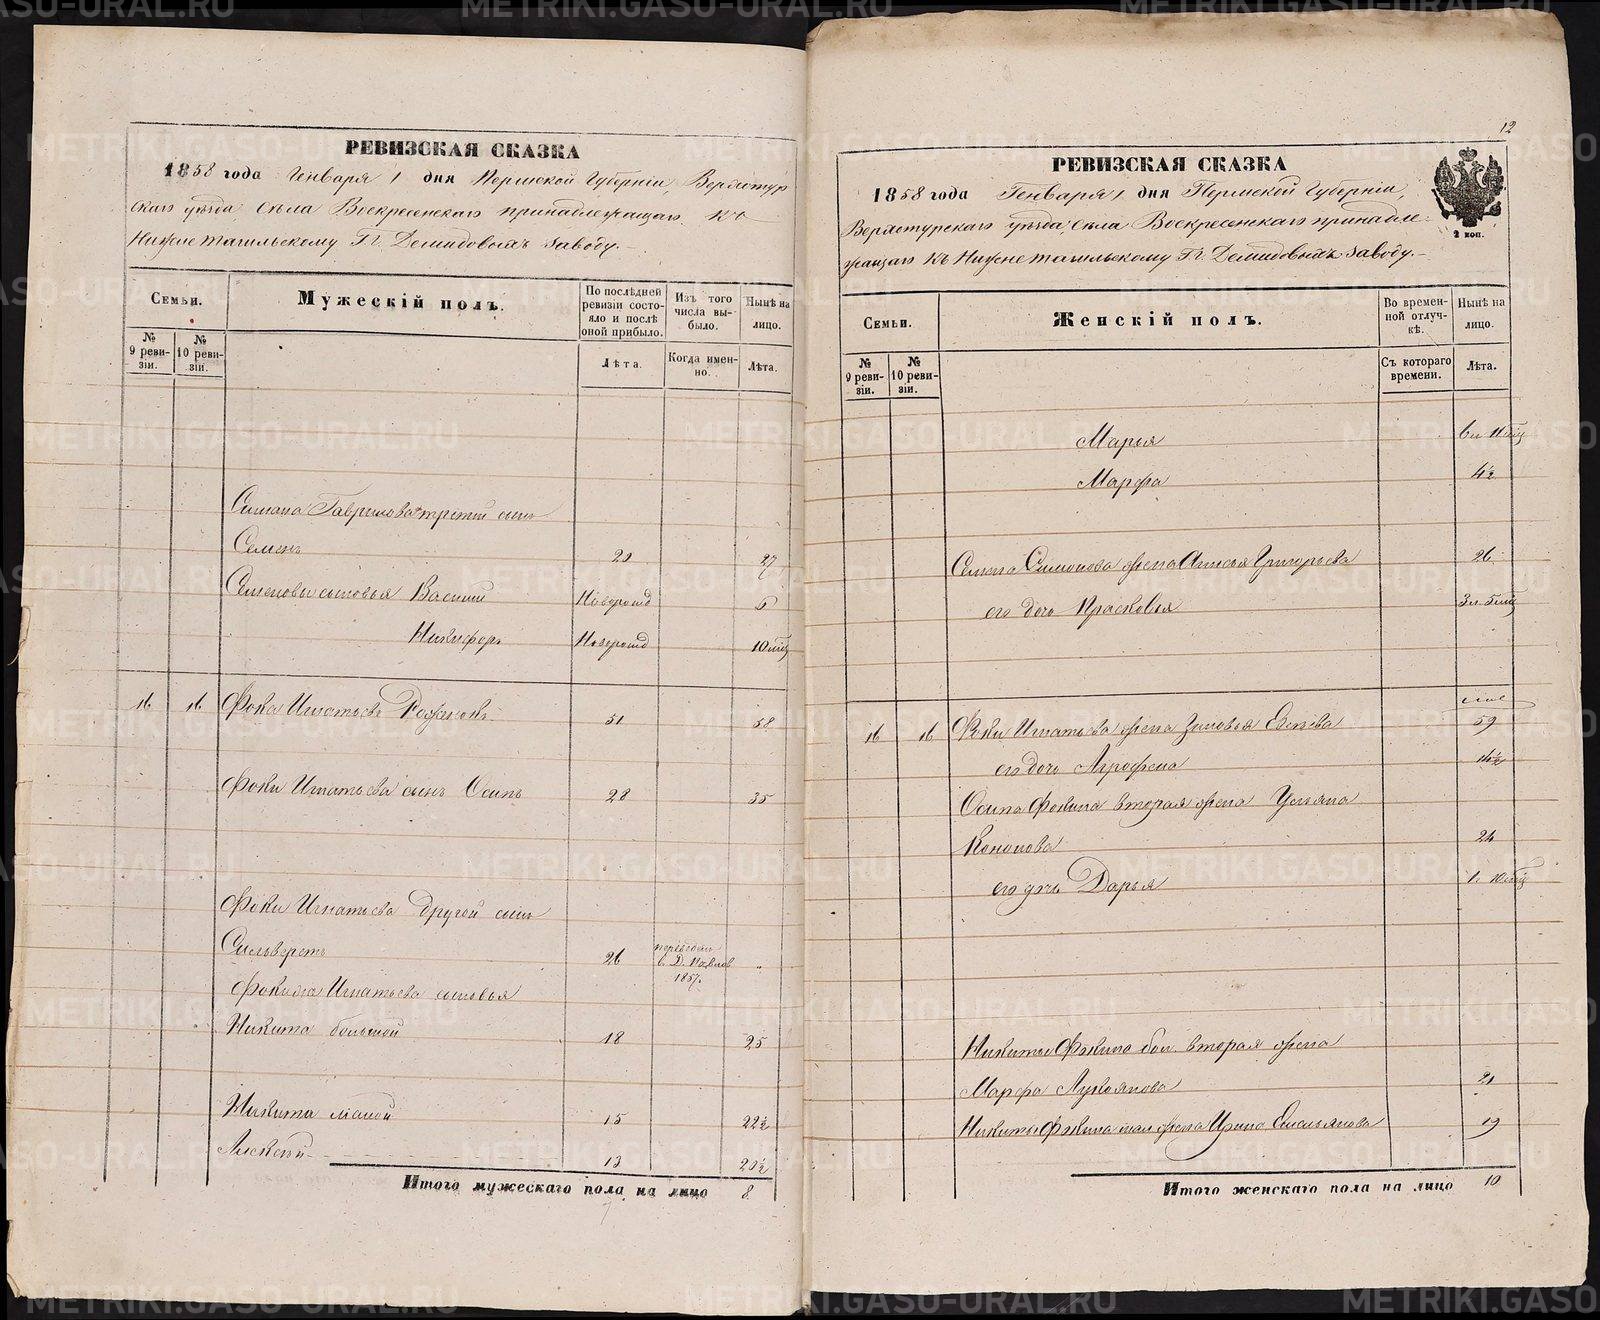 РЕВИЗСКАЯ СКАЗКА
1858 года Генваря 1 дня Пермской Губерніи Верхотур
скаго уѣзда Села Воскресенскаго принадлежащаго къ
Нижнетагильскому Гг. Демидовыхъ заводу.
Семьи.
№ 9 ревизіи.
№ 10 ревизіи.
Мужескій полъ.
По послѣдней ревизіи состояло и послѣ оной прибыло.
Лѣта.
Изъ того числа выбыло.
Когда именно.
Нынѣ на лицо.
Лѣта.
Симана Гаврилова третій сынъ
Семенъ 20 27
Семеновы сыновья Василий Новорожд 6
Никифоръ Новорожд 10 мѣц
16 16 Фока Игнатьевъ 51 58
Фоки Игнатьева сынъ Осипъ 28 35
Фоки Игнатьева другой сынъ
Сильверстъ 26 переведенъ в Д. 1857. "
Фокиже Игнатьева сыновья
Никита большой 18 25
Никита малой 15 22½
Алексей 13 20½
Итого мужескаго пола на лицо 8
12
РЕВИЗСКАЯ СКАЗКА
1858 года Генваря 1 дня Пермской Губерніи,
Верхотурскаго уѣзда, Села Воскресенскаго принадле-
жащаго къ Нижнетагильскому Гг. Демидовыхъ заводу.
2 коп.
Семьи.
№ 9 ревизіи.
№ 10 ревизіи.
Женскій полъ.
Во временной отлучкѣ.
Съ котораго времени.
Нынѣ на лицо.
Лѣта.
Марья 6 л 11 мѣц
Марфа 4½
Семена Симонова жена Анисья Григорьева 26
его дочь Прасковья 3 л. 5 мѣц
16 16 Фоки Игнатьева жена Зиновья 59
его дочь Агрофена 14½
Осипа Фокина вторая жена Ульяна
Кононова 24
его дочь Дарья 1. 10 мѣц
Никиты Фокина бол. вторая жена
Марфа Лукоянова 21
Никиты Фокина мал жена Ирина Емельянова 19
Итого женскаго пола на лицо 10
METRIKI.GASO-URAL.RU